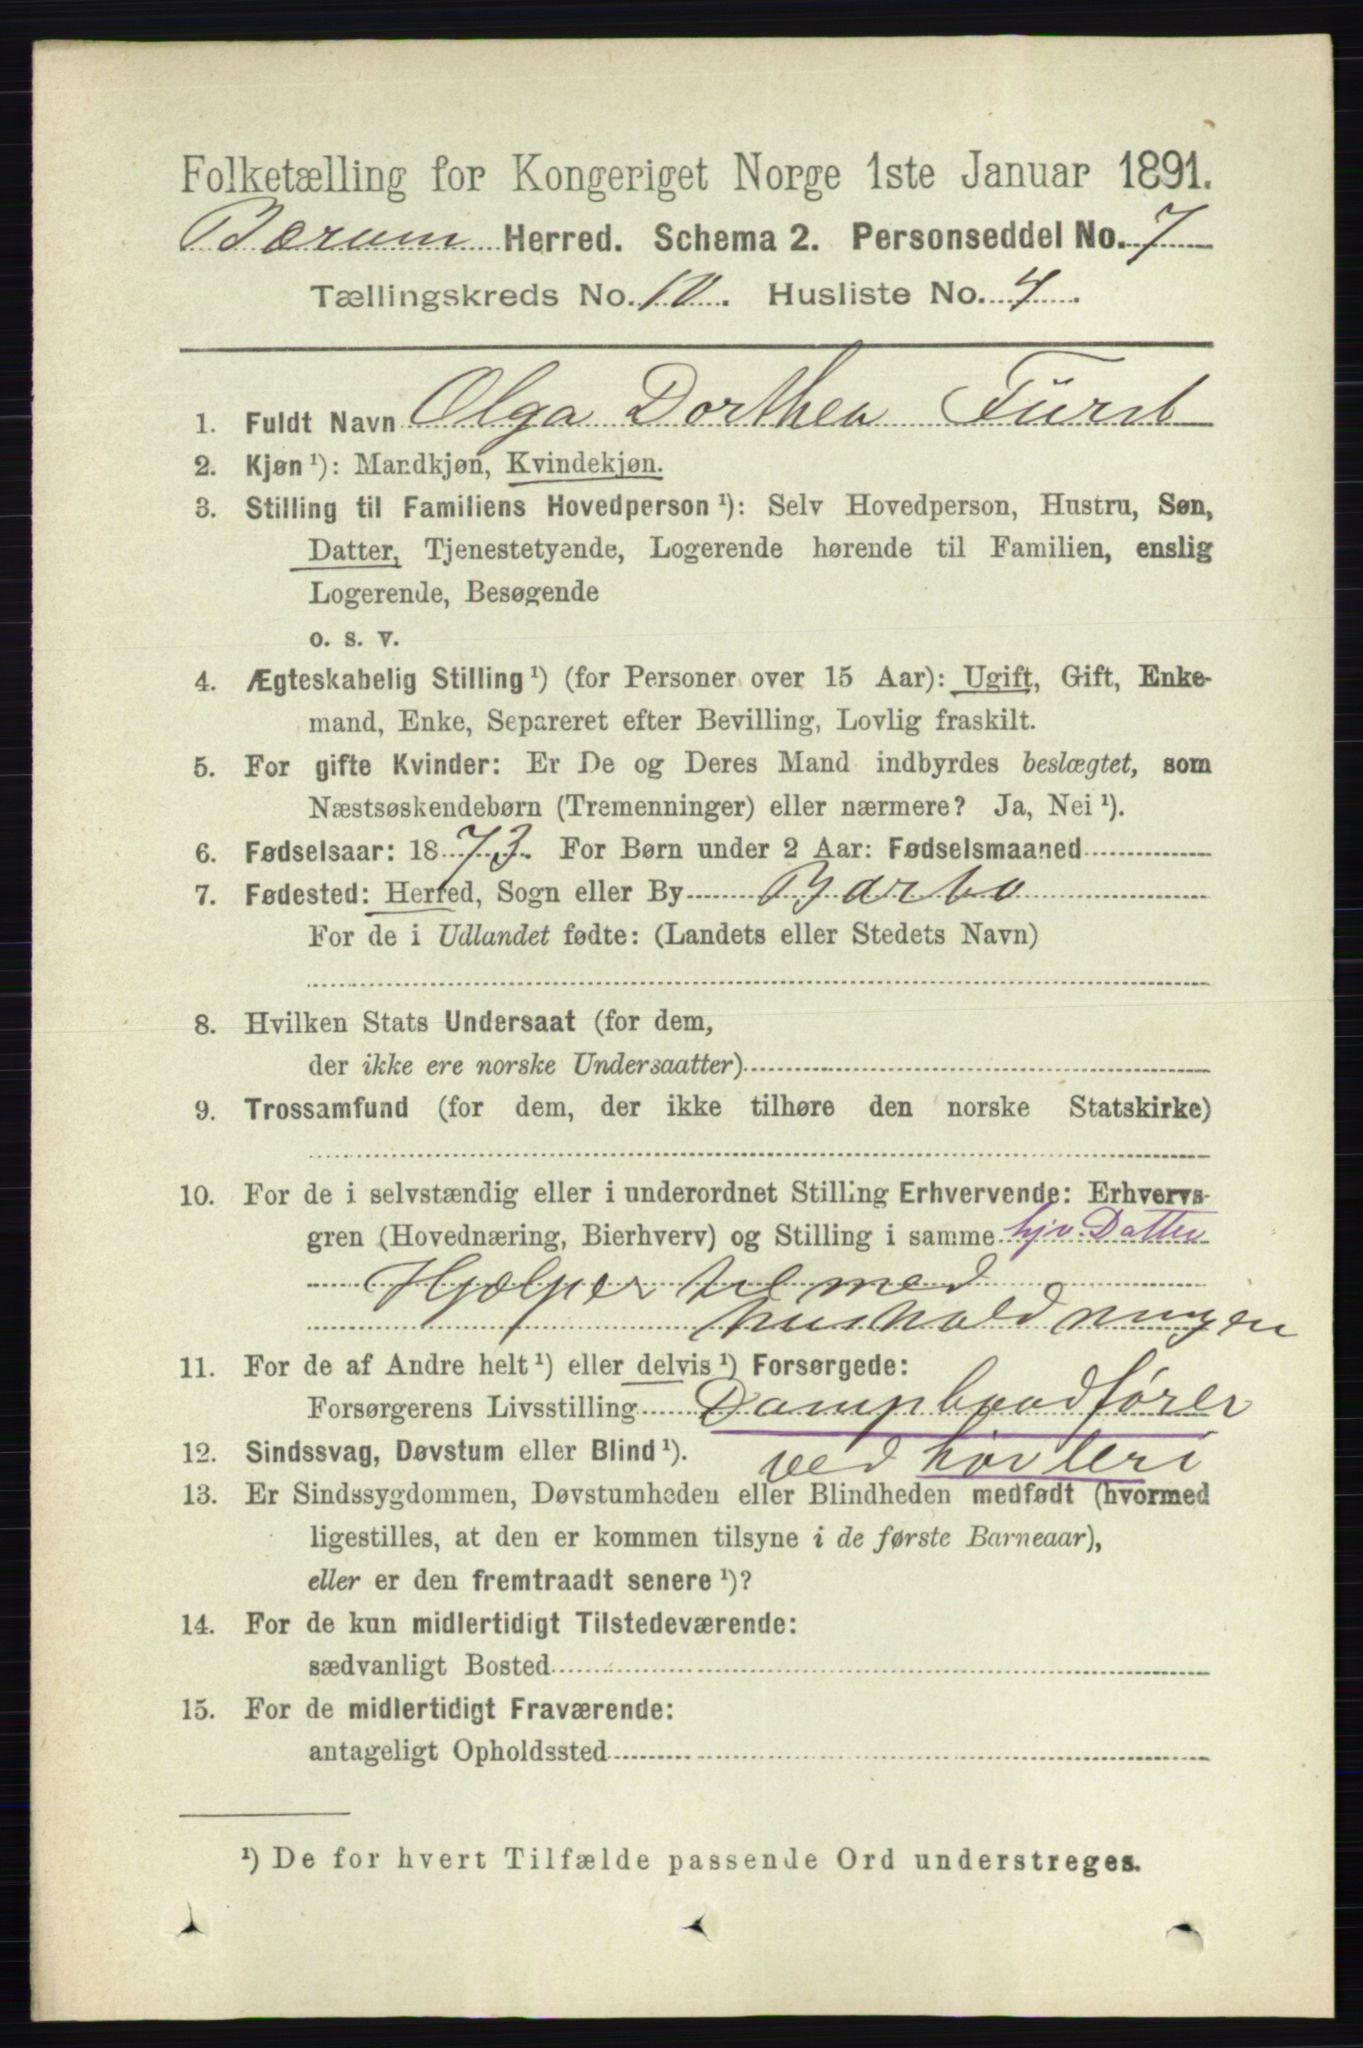 Folketælling for Kongeriget Norge 1ste Januar 1891.
Bærum Herred. Schema 2. Personseddel No. 7
Tællingskreds No. 10. Husliste No. 4.
1. Fuldt Navn Olga Dorthea Fürst
2. Kjøn ¹): Mandkjøn, Kvindekjøn.
3. Stilling til Familiens Hovedperson ¹): Selv Hovedperson, Hustru, Søn,
Datter, Tjenestetyende, Logerende hørende til Familien, enslig
Logerende, Besøgende
o. s. v.
4. Ægteskabelig Stilling ¹) (for Personer over 15 Aar): Ugift, Gift, Enke-
mand, Enke, Separeret efter Bevilling, Lovlig fraskilt.
5. For gifte Kvinder: Er De og Deres Mand indbyrdes beslægtet, som
Næstsøskendebørn (Tremenninger) eller nærmere? Ja, Nei ¹).
6. Fødselsaar: 1873. For Børn under 2 Aar: Fødselsmaaned
7. Fødested: Herred, Sogn eller By Barbo
For de i Udlandet fødte: (Landets eller Stedets Navn)
8. Hvilken Stats Undersaat (for dem,
der ikke ere norske Undersaatter)
9. Trossamfund (for dem, der ikke tilhøre den norske Statskirke)
10. For de i selvstændig eller i underordnet Stilling Erhvervende: Erhvervs-
gren (Hovednæring, Bierhverv) og Stilling i samme hjv. Datter
Hjælper til med
husholdningen
11. For de af Andre helt ¹) eller delvis ¹) Forsørgede:
Forsørgerens Livsstilling Dampbaadfører
12. Sindssvag, Døvstum eller Blind ¹). ved
13. Er Sindssygdommen, Døvstumheden eller Blindheden medfødt (hvormed
ligestilles, at den er kommen tilsyne i de første Barneaar),
eller er den fremtraadt senere ¹)?
14. For de kun midlertidigt Tilstedeværende:
sædvanligt Bosted
15. For de midlertidigt Fraværende:
antageligt Opholdssted
¹) De for hvert Tilfælde passende Ord understreges.